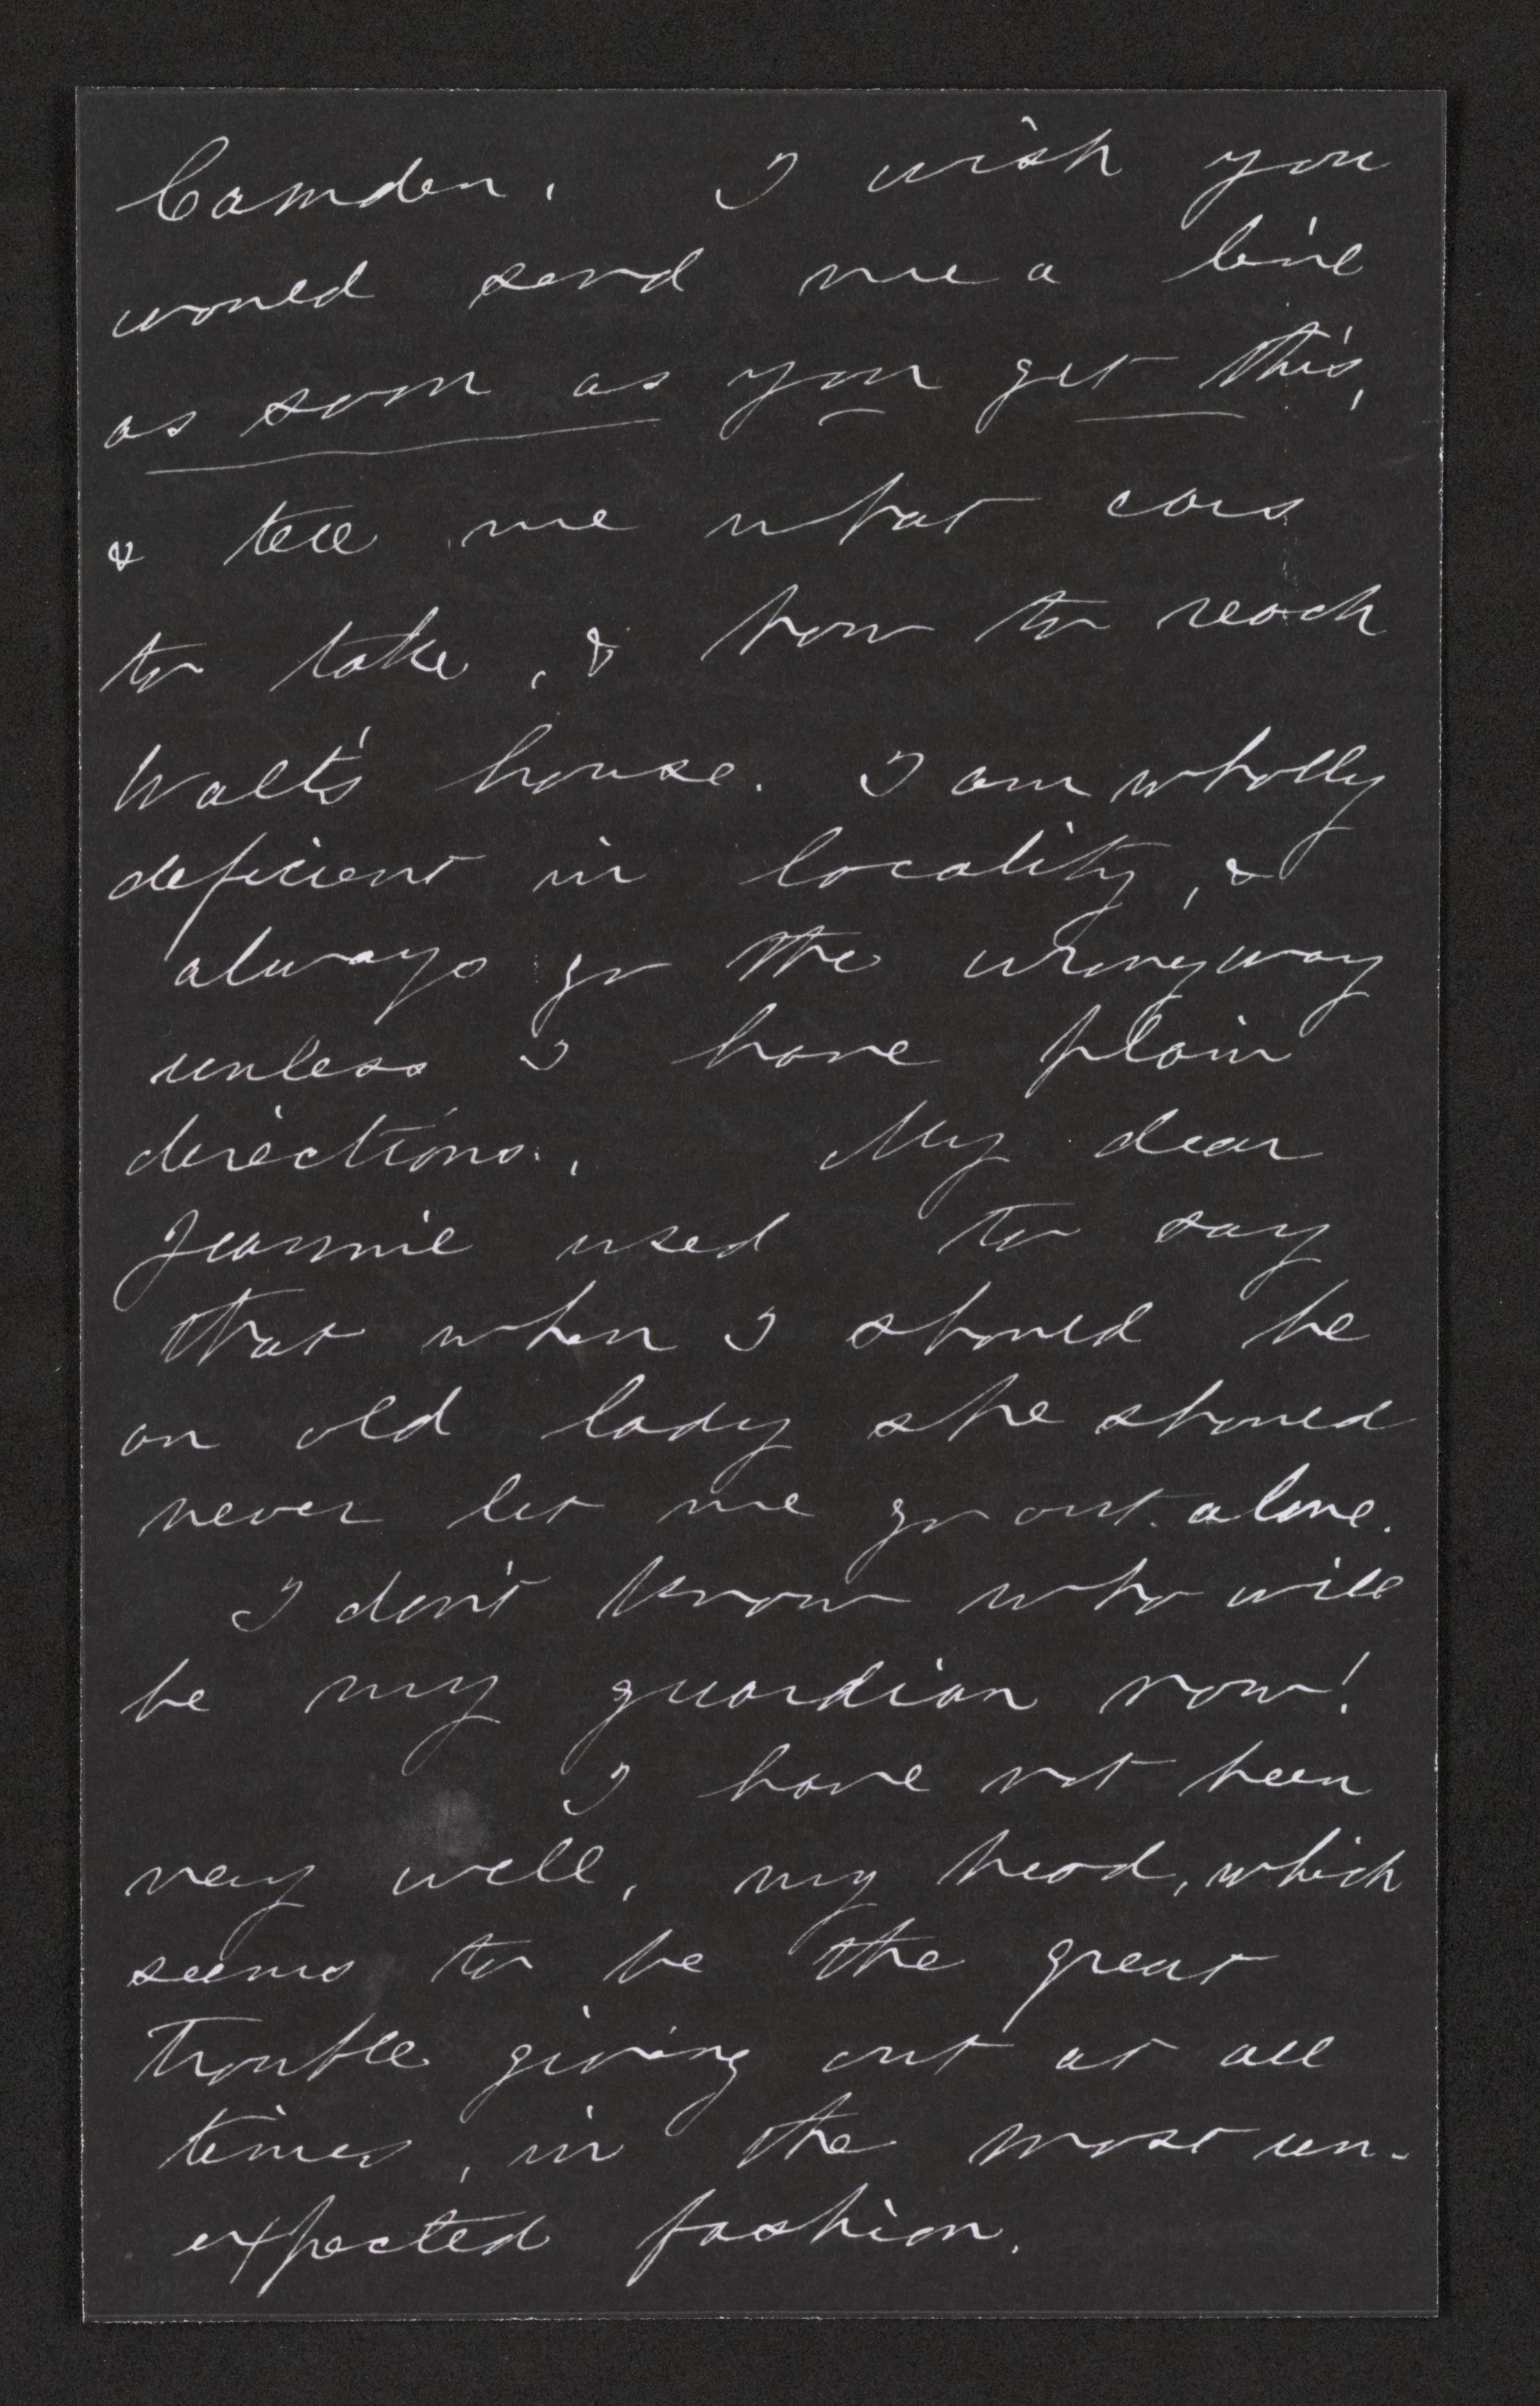 Camden. I wish you
would send me a line
as soon as you get this,
& tell me what cars
to take, & how to reach
Walt's house. I am wholly
deficient in locality, &
always go the wrong way
unless I have plain
directions. My dear
Jeannie used to say
that when I should be
an old lady she should
never let me go out alone.
I don't know who will
be my guardian now!
I have not been
very well, my head, which
seems to be the great
trouble giving out at all
times, in the most un-
expected fashion.